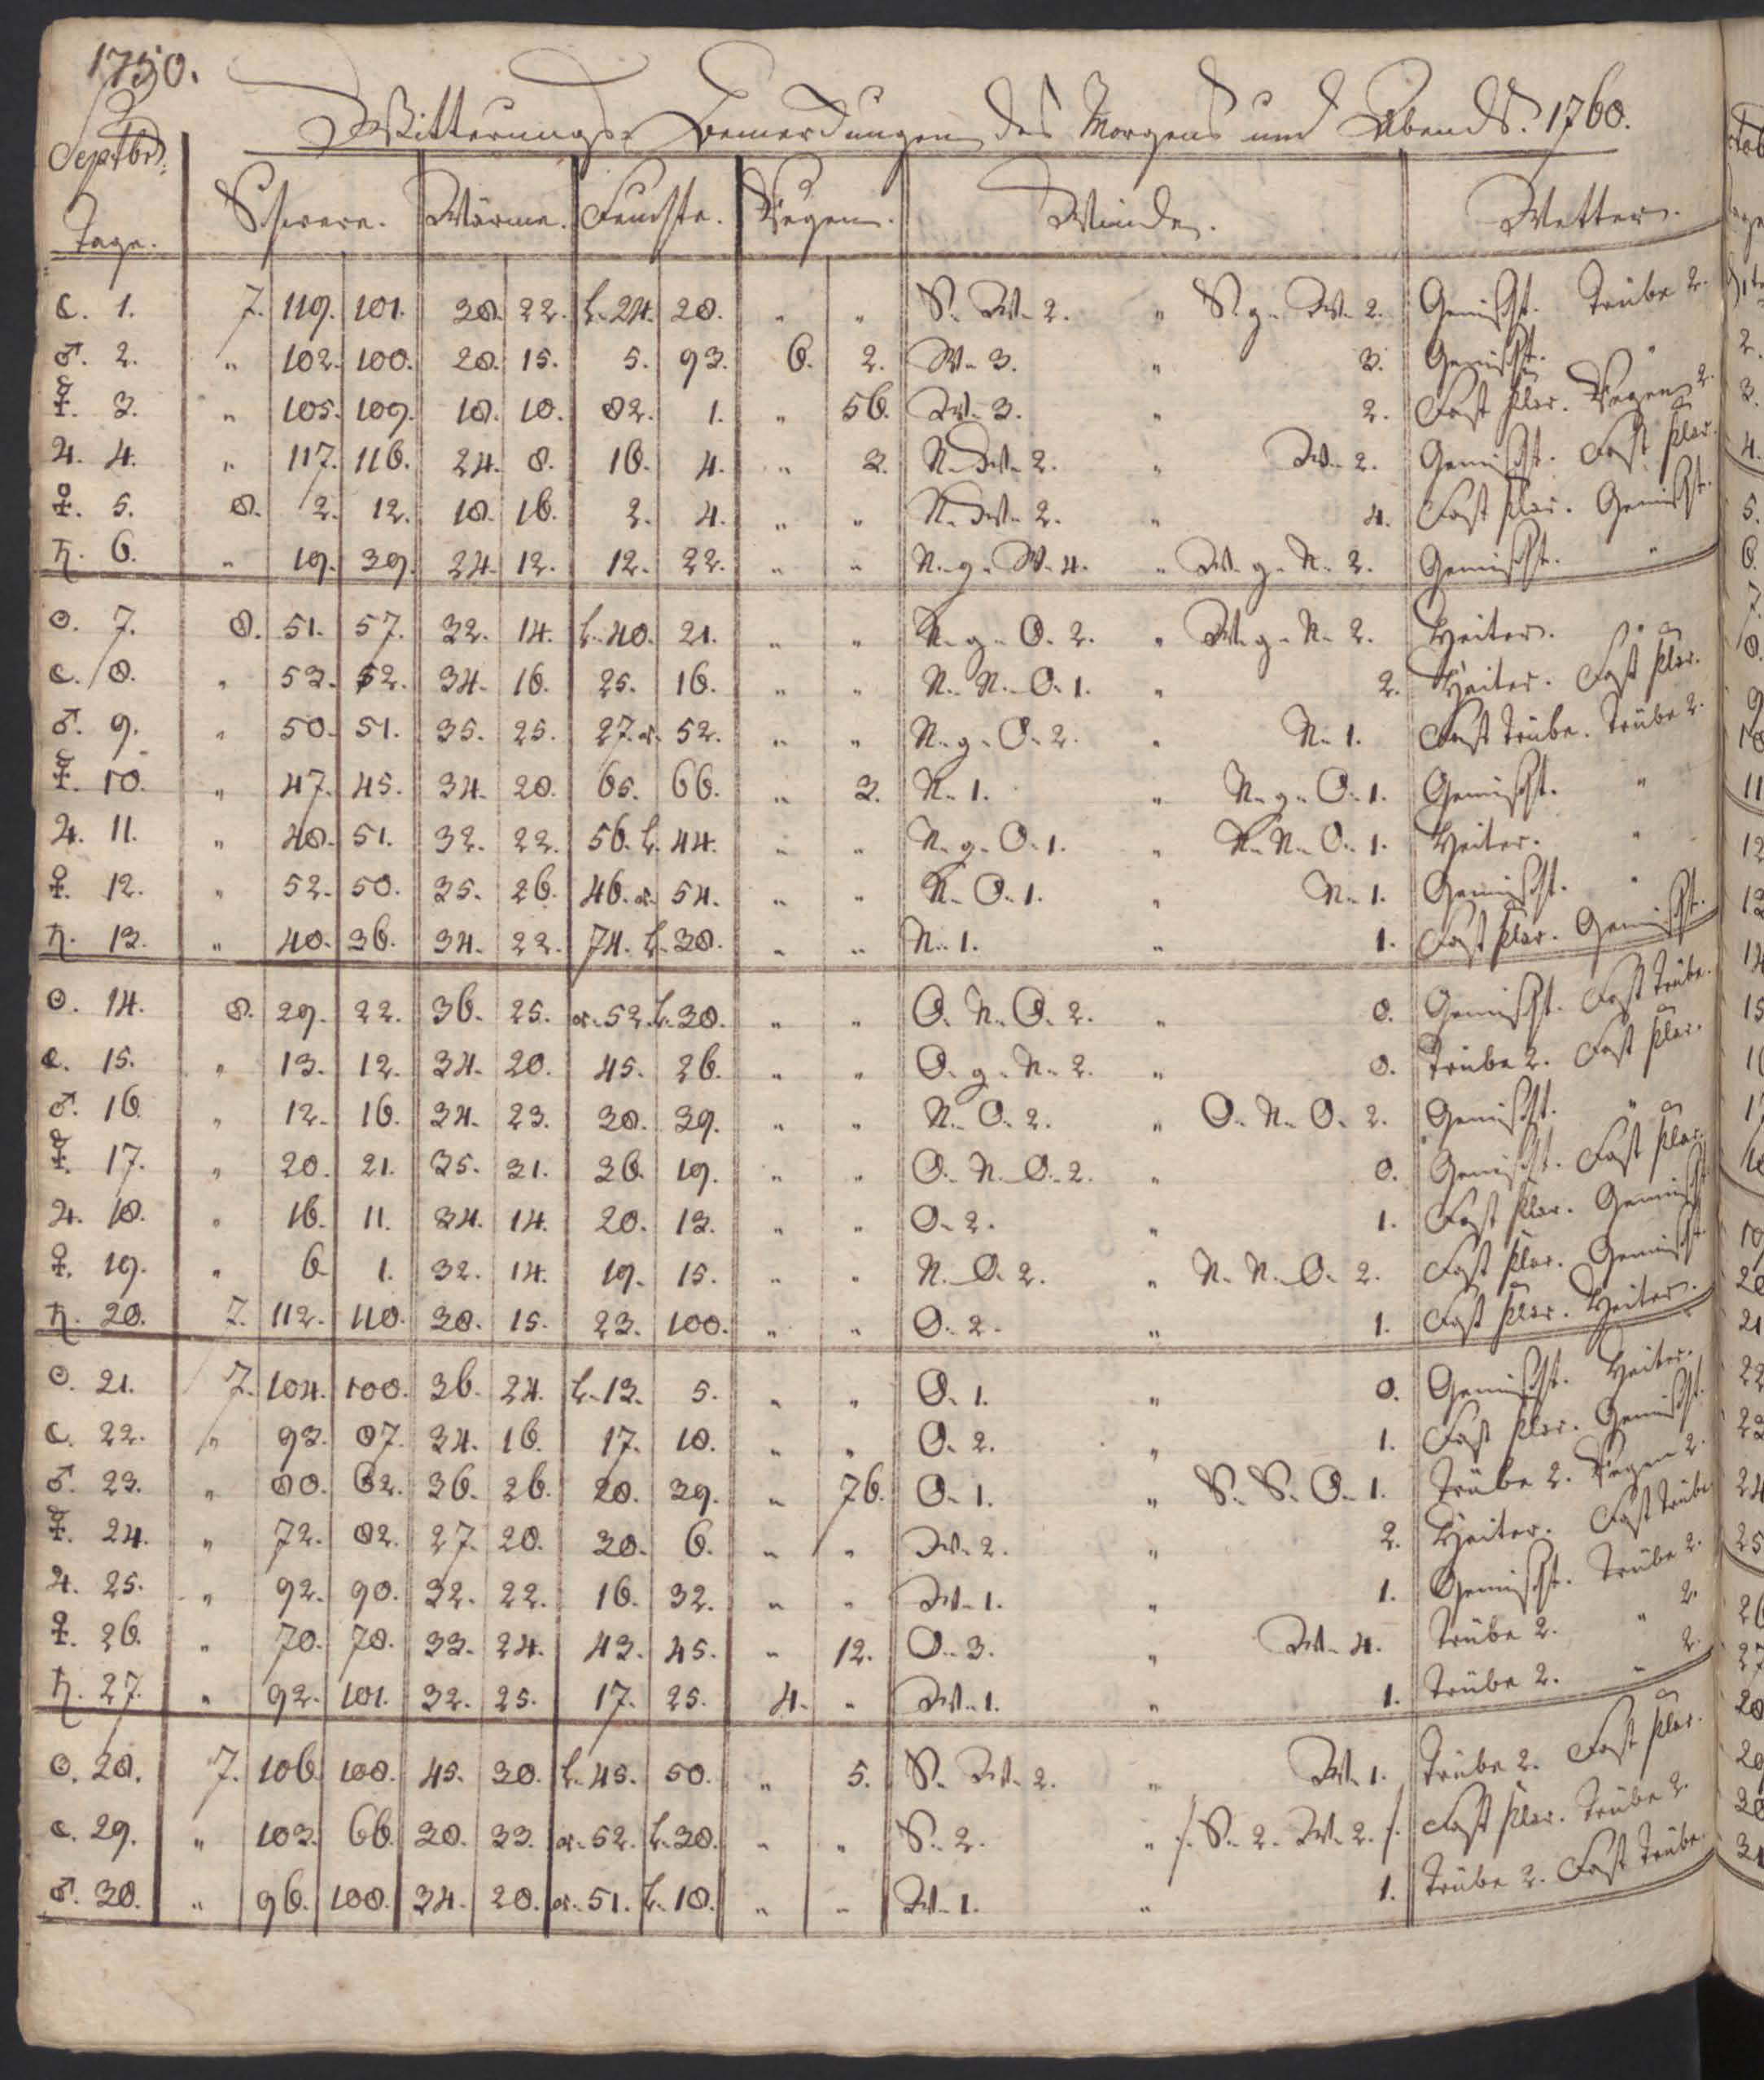 1750.
Witterungs-Bemerckungen des Morgens und Abends. 1760.
Septbr:
Tage. Schwere. Wärme. Feuchte. Regen. Winde. Wetter.
☾. 1. 7. 119. 101. 30. 22. L. 24. 28. " " S. W. 2. " S. g. W. 2. Gemischt. Trübe 2.
♂. 2. " 102. 100. 28. 15. 5. 93. 6. 2. W. 3. " 3. Gemischt. "
☿. 3. " 105. 109. 18. 10. 82. 1. " 56. W. 3. " 2. Fast klar. Regen 2.
♃. 4. " 117. 116. 24. 8. 16. 4. " 3. N. W. 2. " W. 2. Gemischt. Fast klar.
♀. 5. 8. 2. 12. 18. 16. 2. 4. " " N. W. 2. " 4. Fast klar. Gemischt.
♄. 6. " 19. 39. 24. 12. 12. 22. " " N. g. W. 4. " W. g. N. 2. Gemischt. "
☉. 7. 8. 51. 57. 32. 14. L. 40. 21. " " N. g. O. 2. " W. g. N. 2. Heiter. "
☾. 8. " 53. 52. 34. 16. 25. 16. " " N. N. O. 1. " 2. Heiter. Fast klar.
♂. 9. " 50. 51. 35. 25. 27. r. 52. " " N. g. O. 2. " N. 1. Fast trübe. Trübe 2.
☿. 10. " 47. 45. 34. 20. 65. 66. " 3. N. 1. " N. g. O. 1. Gemischt. "
♃. 11. " 48. 51. 32. 22. 56. L. 44. " " N. g. O. 1. " N. N. O. 1. Heiter. "
♀. 12. " 52. 50. 35. 26. 46. r. 54. " " N. O. 1. " N. 1. Gemischt. "
♄. 13. " 40. 36. 34. 22. 74. L. 38. " " N. 1. " 1. Fast klar. Gemischt.
☉. 14. 8. 29. 22. 36. 25. r. 52. L. 30. " " O. N. O. 2. " 0. Gemischt. Fast trübe.
☾. 15. " 13. 12. 34. 20. 45. 26. " " O. g. N. 2. " 0. Trübe 2. Fast klar.
♂. 16. " 12. 16. 34. 23. 30. 39. " " N. O. 2. " O. N. O. 2. Gemischt. "
☿. 17. " 20. 21. 35. 31. 36. 19. " " O. N. O. 2. " 0. Gemischt. Fast klar.
♃. 18. " 16. 11. 34. 14. 20. 13. " " O. 2. " 1. Fast klar. Gemischt.
♀. 19. " 6. 1. 32. 14. 19. 15. " " N. O. 2. " N. N. O. 2. Fast klar. Gemischt.
♄. 20. 7. 112. 110. 30. 15. 23. 100. " " O. 2. " 1. Fast klar. Heiter.
☉. 21. 7. 104. 100. 36. 24. L. 13. 5. " " O. 1. " 0. Gemischt. Heiter.
☾. 22. " 93. 87. 34. 16. 17. 18. " " O. 2. " 1. Fast klar. Gemischt.
♂. 23. " 80. 62. 36. 26. 20. 39. " 76. O. 1. " S. S. O. 1. Trübe 2. Regen 2.
☿. 24. " 72. 82. 27. 20. 30. 6. " " W. 2. " 2. Heiter. Fast trübe.
♃. 25. " 92. 90. 32. 22. 16. 32. " " W. 1. " 1. Gemischt. Trübe 2.
♀. 26. " 70. 78. 33. 24. 43. 45. " 12. O. 3. " W. 4. Trübe 2. " 2.
♄. 27. " 92. 101. 32. 25. 17. 25. 4. " W. 1. " 1. Trübe 2. " 2.
☉. 28. 7. 106. 108. 45. 30. L. 45. 50. " 5. S. W. 2. " W. 1. Trübe 2. Fast klar.
☾. 29. " 103. 66. 30. 33. r. 52. L. 38. " " S. 2. " /. S. 2. W. 2. /. Fast klar. Trübe 2.
♂. 30. " 96. 108. 34. 20. r. 51. L. 18. " " W. 1. " 1. Trübe 2. Fast trübe.